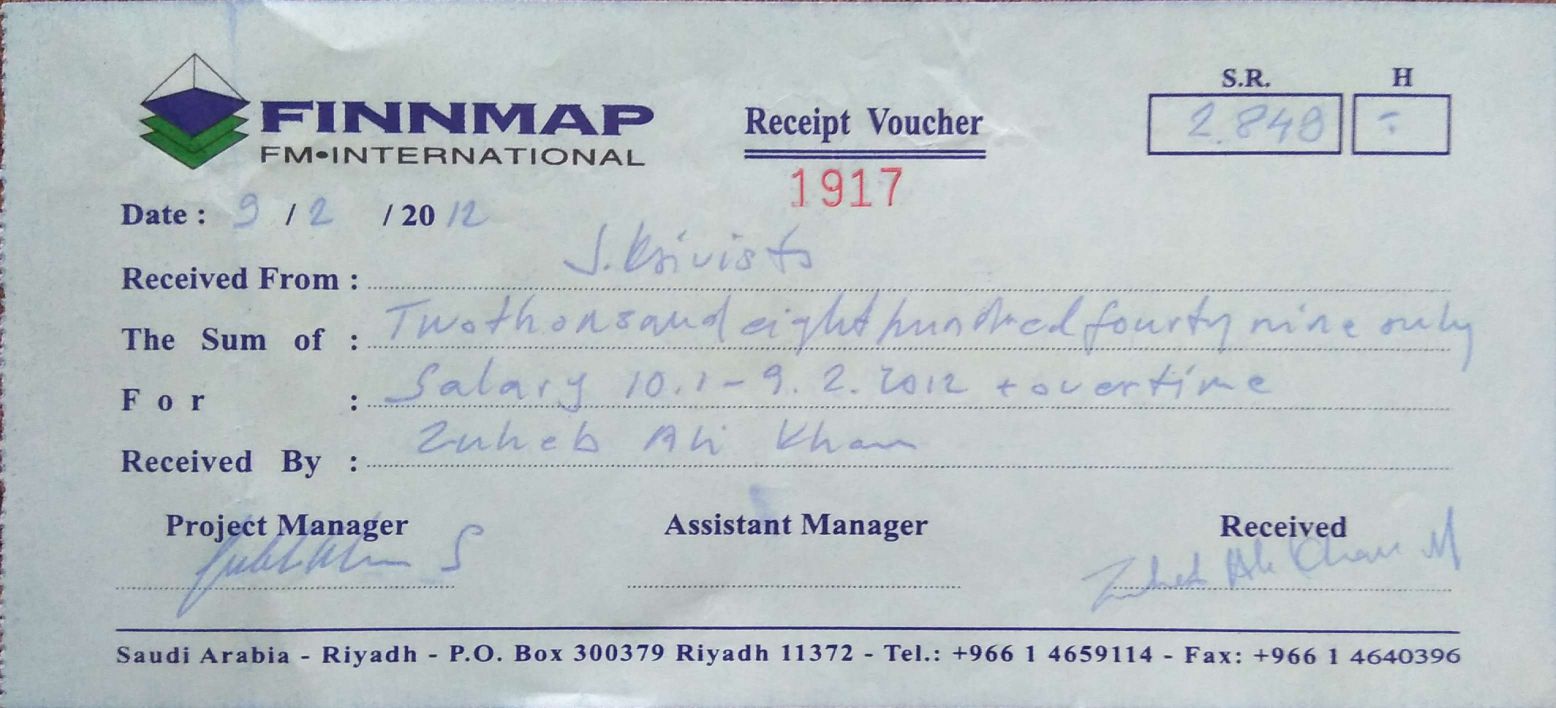 FINNMAP
FM•INTERNATIONAL
Receipt Voucher
1917
S.R. H
2.849 -
Date : 9 / 2 / 2012
Received From : J.
The Sum of : Two thousand eight hundred fourty nine only
For : Salary 10.1 - 9.2.2012 + overtime
Received By : Zuheb Ali Khan
Project Manager Assistant Manager Received
Zuheb Ali Khan M
Saudi Arabia - Riyadh - P.O. Box 300379 Riyadh 11372 - Tel.: +966 1 4659114 - Fax: +966 1 4640396